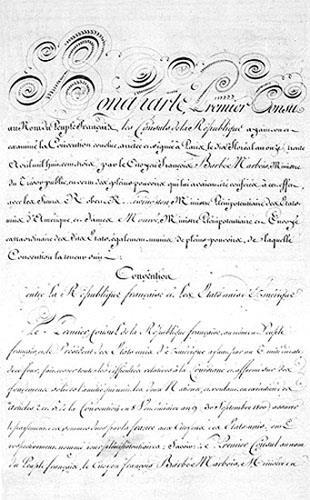 Bonaparte Premier Consul
au Nom du Peuple Français, les Consuls de la République ayant vu et
examiné la Convention conclue, arrêtée et signée à Paris le dix floréal an onze, trente
Avril mil huit cent trois, par le Citoyen François Barbé Marbois, Ministre
du Trésor public, en vertu des pleins pouvoirs qui lui avaient été conférés à cet effet
avec les Sieurs Robert R. Livingston Ministre Plénipotentiaire des Etats
unis d'Amérique, et James Monroe, Ministre Plénipotentiaire et Envoyé
extraordinaire des dits Etats, également munis de pleins pouvoirs, de laquelle
Convention la teneur suit:
Convention
entre la République française et les Etats unis d'Amérique
Le Premier Consul de la République française, au nom du Peuple
français, et le Président des Etats unis d'Amérique ayant par un Traité de
ce jour, fait cesser toutes les difficultés relatives à la Louisiane et affermi sur des
fondemens solides l'amitié qui unit les deux Nations, et voulant, en exécution des
articles 2 et 5 de la Convention du 8 Vendémiaire an 9, 30 Septembre 1800, assurer
le payement des sommes dues par la france aux Citoyens des Etats unis, ont
respectivement nommé pour Plénipotentiaires; Savoir: Le Premier Consul au nom
du Peuple français, le Citoyen françois Barbé Marbois, Ministre du